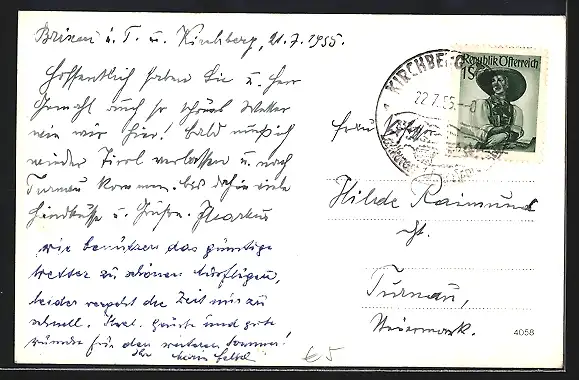 Brixen i. T. u. Kirchberg, 21.7.1955.
Hoffentlich haben Sie u. Herr
Gemahl auch so schönes Wetter
wie wir hier! Bald muß ich
wieder Tirol verlassen u. nach
Turnau kommen. bis dahin viele
Handküsse u. Grüße. Markus
wir benützen das günstige
wetter zu schönen Ausflügen,
leider vergeht die Zeit nur zu
schnell. Herzl. Grüße und gute
wünsche für den weiteren Sommer!
Ihr
Republik Österreich
1S
KIRCHBERG
22.7.55
Frau
Hilde Raimund
Turnau,
Steiermark.
4058
€5